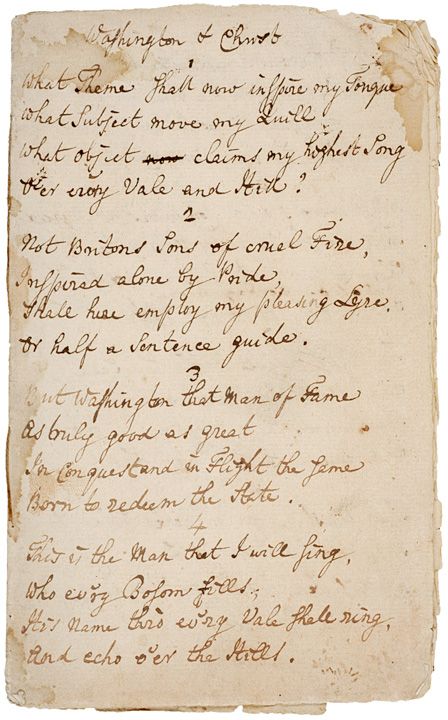 Washington & Christ
1
What Theme shall now inspire my Tongue
What Subject move my Quill
What object now claims my highest Song
O'er every Vale and Hill?
2
Not Britons Sons of cruel Fire,
Inspired alone by Pride,
Shall here employ my pleasing Lyre,
Or half a Sentence guide.
3
But Washington that Man of Fame
As truly good as great
In Conquest and in Flight the same
Born to redeem the State.
4
This is the Man that I will sing,
Who ev'ry Bosom fills,
His Name thro ev'ry Vale shall ring,
And echo o'er the Hills.